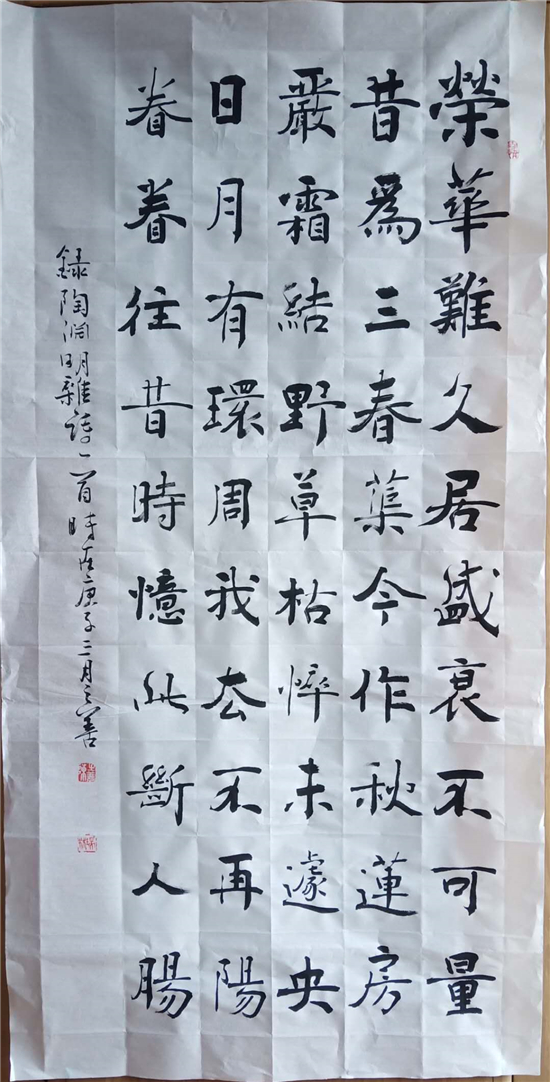 榮華難久居盛衰不可量
昔為三春蕖今作秋蓮房
嚴霜結野草枯悴未遽央
日月有環周我去不再陽
眷眷往昔時憶此斷人腸
録陶淵明雜詩一首時在庚子三月之善